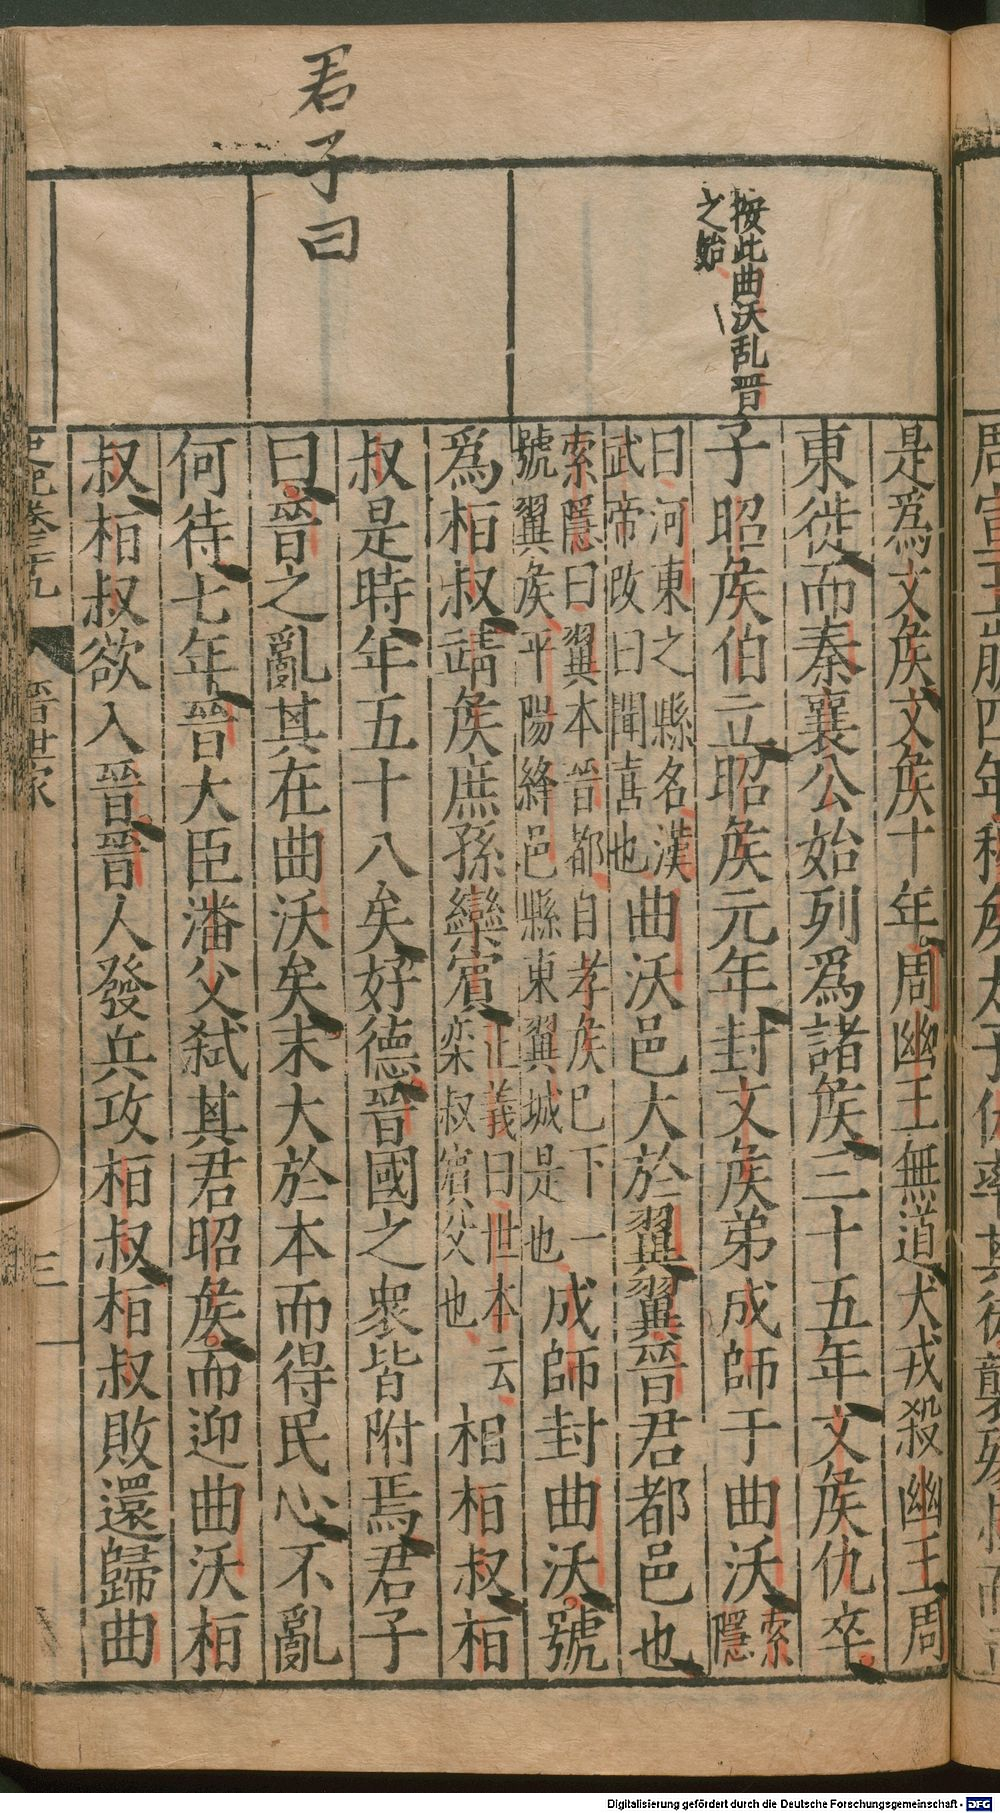 君子曰
按此曲沃乱晋
之始
是爲文矦文矦十年周幽王無道犬戎殺幽王周
東徙而秦襄公始列爲諸矦三十五年文矦仇卒
子昭矦伯立昭矦元年封文矦弟成師于曲沃索隱
曰河東之縣名漢
武帝改曰聞喜也曲沃邑大於翼翼晉君都邑也
索隱曰翼本晉都自孝矦已下一
號翼矦平陽絳邑縣東翼城是也成師封曲沃號
爲桓叔靖矦庶孫欒賔正義曰世本云
欒叔賔父也相桓叔桓
叔是時年五十八矣好德晉國之衆皆附焉君子
曰晉之亂其在曲沃矣末大於本而得民心不亂
何待七年晉大臣潘父弑其君昭矦而迎曲沃桓
叔桓叔欲入晉晉人發兵攻桓叔桓叔敗還歸曲
史記卷三十九 晉世家 三
Digitalisierung gefördert durch die Deutsche Forschungsgemeinschaft - DFG